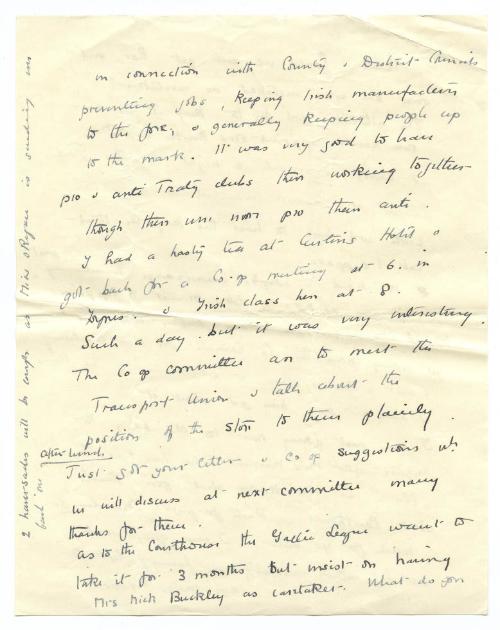 in connection with County & District Councils
preventing jobs, keeping Irish manufacture
to the fore, & generally keeping people up
to the mark. It was very good to have
pro & anti Treaty clubs then working together
though there were more pro than anti.
I had a hasty tea at Hotel &
got back for a Co-op meeting at 6. in
& Irish class here at 8.
Such a day. but it was very interesting.
The Co op committee are to meet the
Transport Union & talk about the
position of the store to them plainly.
after lunch
Just got your letter & Co op suggestions wh
we will discuss at next committee many
thanks for them.
as to the Courthouse the Gaelic League want to
take it for 3 months but insist on having
Mrs Mick Buckley as caretaker. What do you
2 haversacks will be enough as Miss O'Regan is sending me
back one